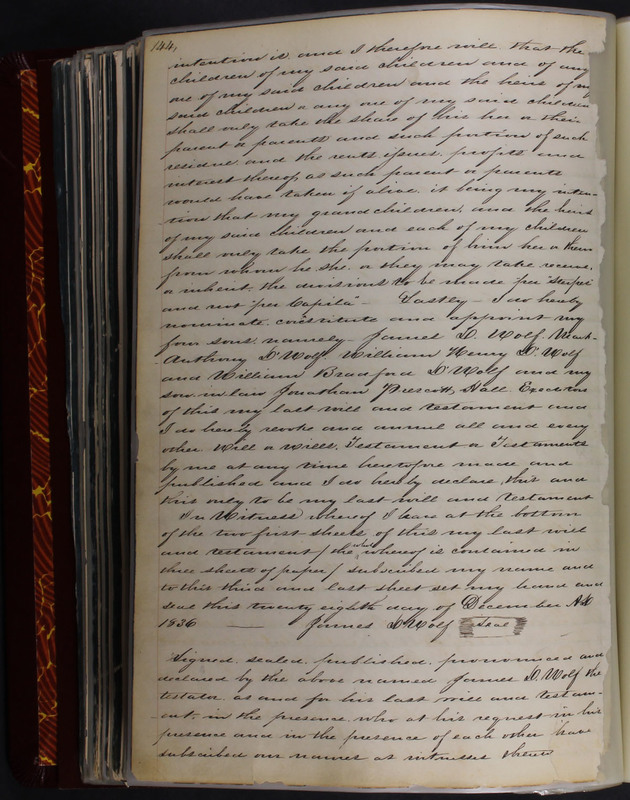 144,
intention is, and I therefore will that the
children of my said children and of any
one of my said children and the heirs of my
said children or any one of my said children
shall only take the share of his her or their
parent or parents and such portion of such
residue and the rents issues, profits and
interest thereof, as such parent or parents
would have taken if alive, it being my inten-
tion that my grandchildren, and the heirs
of my said children and each of my children
shall only take the portion of him her or them
from whom he, she, or they may take receive,
or inherit, the divisions to be made per "stirpes"
and not "per Capita" - Lastly - I do hereby
nominate constitute and appoint my
four sons, namely - James D. Wolf. Mark
Anthony D'Wolf, William Henry D'Wolf
and William Bradford D'Wolf and my
son in law Jonathan Prescott Hall. Executors
of this my last will and testament and
I do hereby revoke and annul all and every
other Will or Wills, Testament or Testaments
by me at any time heretofore made and
published and I do hereby declare, this and
this only to be my last will and testament
In Witness whereof I have at the bottom
of the two first sheets, of this my last will
and testament / the whole whereof is contained in
three sheets of paper / subscribed my name and
to this third and last sheet set my hand and
seal this twenty eighth day of December AD
1836 James D'Wolf Seal
Signed, sealed, published, pronounced and
declared by the above named James D. Wolf the
testator as and for his last will and testam-
-ent, in the presence, who at his request in his
presence and in the presence of each other have
subscribed our names as witnesses